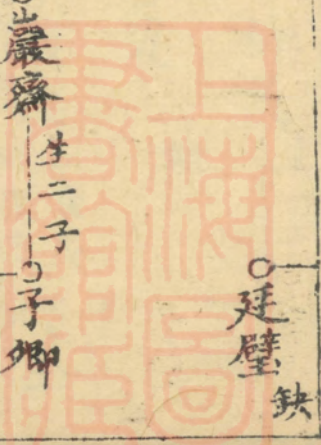 廷璧 缺
巖齋 生二子
子卿
上海圖
書館